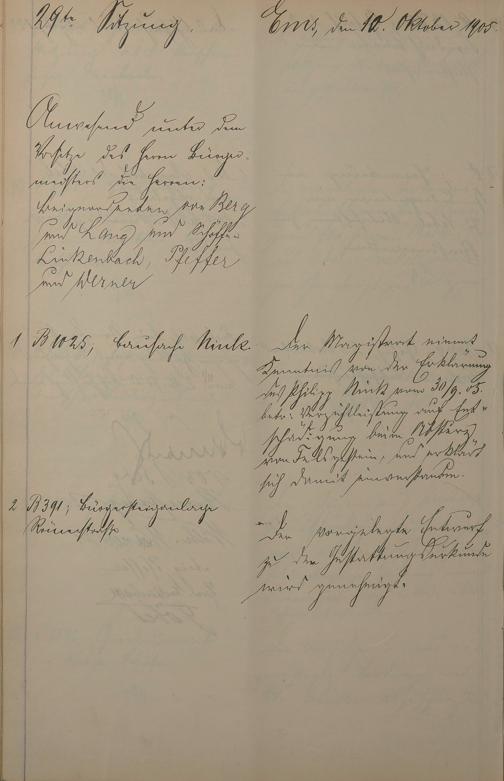 29te Sitzung.
Ems, den 10. Oktober 1905.
Anwesend unter dem
Vorsitze des Herrn Bürger-
meisters die Herren:
Beigeordneten von Berg
und Lang und Schöffen
Linkenbach, Pfeffer
und Werner
1 B 1025, Bausache Nink.
Der Magistrat nimmt
Kenntnis von der Erklärung
des Philipp Nink vom 30/9. 05.
betr: Verzichtleistung auf Ent-
schädigung beim
von und erklärt
sich damit einverstanden.
2 B 391; Bürgersteiganlage
Römerstraße
Der vorgelegte Entwurf
zu der Gestattungsurkunde
wird genehmigt.